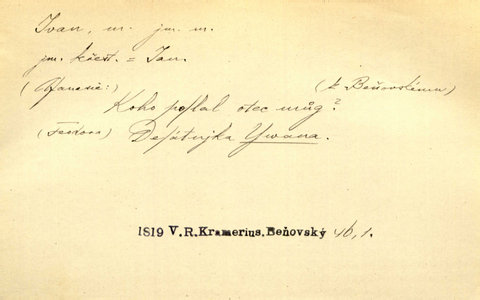 Ivan, m. jm. m.
jm. křest. = Jan.
(Afanasie:) (k Beňovskému)
Koho poslal otec můg?
(Feodora) Desátnjka Ywana.
1819 V.R.Kramerius, Beňovský 46, 1.